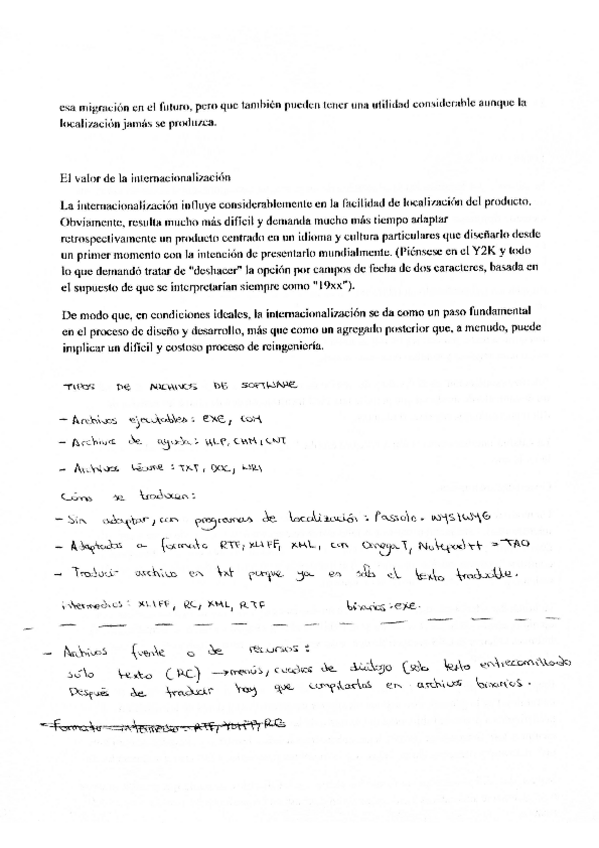 esa migración en el futuro, pero que también pueden tener una utilidad considerable aunque la
localización jamás se produzca.
El valor de la internacionalización
La internacionalización influye considerablemente en la facilidad de localización del producto.
Obviamente, resulta mucho más difícil y demanda mucho más tiempo adaptar
retrospectivamente un producto centrado en un idioma y cultura particulares que diseñarlo desde
un primer momento con la intención de presentarlo mundialmente. (Piénsese en el Y2K y todo
lo que demandó tratar de "deshacer" la opción por campos de fecha de dos caracteres, basada en
el supuesto de que se interpretarían siempre como "19xx").
De modo que, en condiciones ideales, la internacionalización se da como un paso fundamental
en el proceso de diseño y desarrollo, más que como un agregado posterior que, a menudo, puede
implicar un difícil y costoso proceso de reingeniería.
TIPOS DE ARCHIVOS DE SOFTWARE
- Archivos ejecutables: EXE, COM
- Archivos de ayuda: HLP, CHM, CNT
- Archivos léame: TXT, DOC, WRI
Cómo se traducen:
- Sin adaptar, con programas de localización: Passolo. WYSIWYG
- Adaptados a formato RTF, XLIFF, XML, con OmegaT, Notepad++ = TAO
- Traducir archivo en txt porque ya es sólo el texto traducible.
intermedios: XLIFF, RC, XML, RTF binarios: exe.
- Archivos fuente o de recursos:
sólo texto (RC) → menús, cuadros de diálogo (solo texto entrecomillado
Después de traducir hay que compilarlos en archivos binarios.
- Formato intermedio: RTF, RC